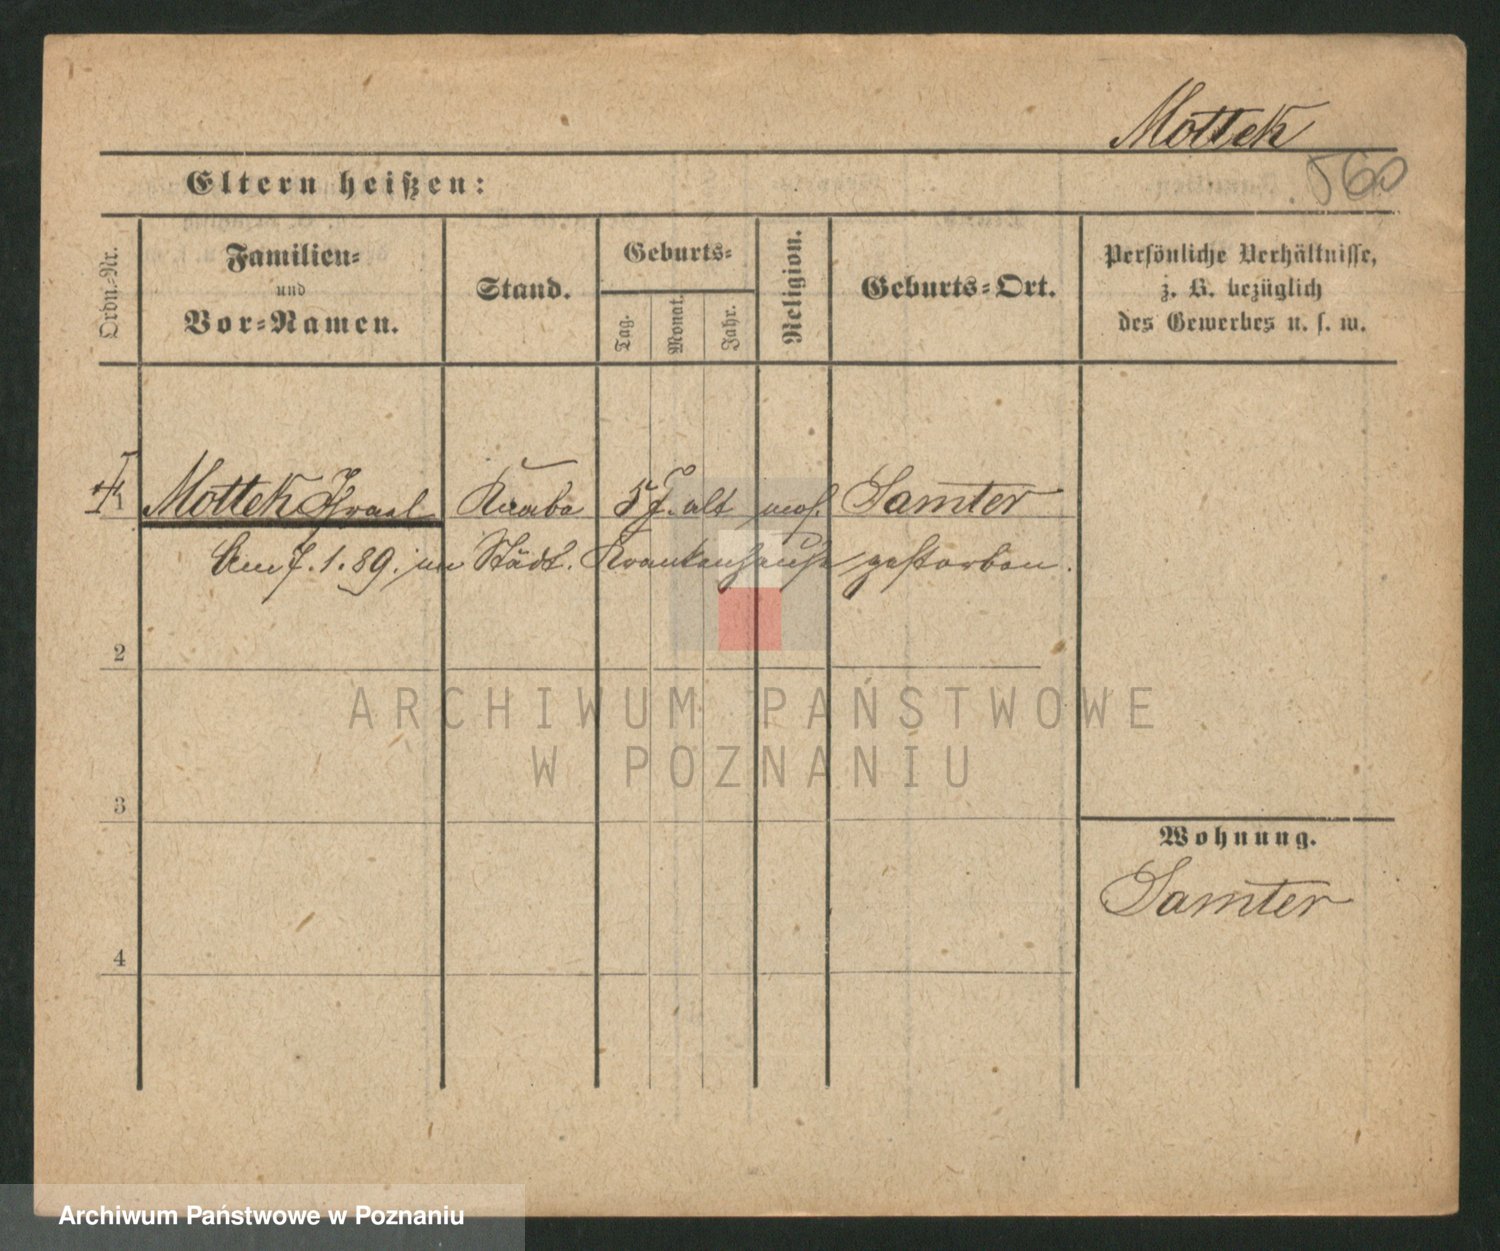 Mottek
560
Eltern heißen:
Ordn.-Nr.
Familien-
und
Vor-Namen.
Stand.
Geburts-
Tag.
Monat.
Jahr.
Religion.
Geburts-Ort.
Persönliche Verhältnisse,
z. B. bezüglich
des Gewerbes u. s. w.
Mottek Israel Knabe 5 J. alt mos. Samter
Am 7.1.89. im Städt. Krankenhause gestorben.
2
3
4
Wohnung.
Samter
ARCHIWUM PAŃSTWOWE
W POZNANIU
Archiwum Państwowe w Poznaniu